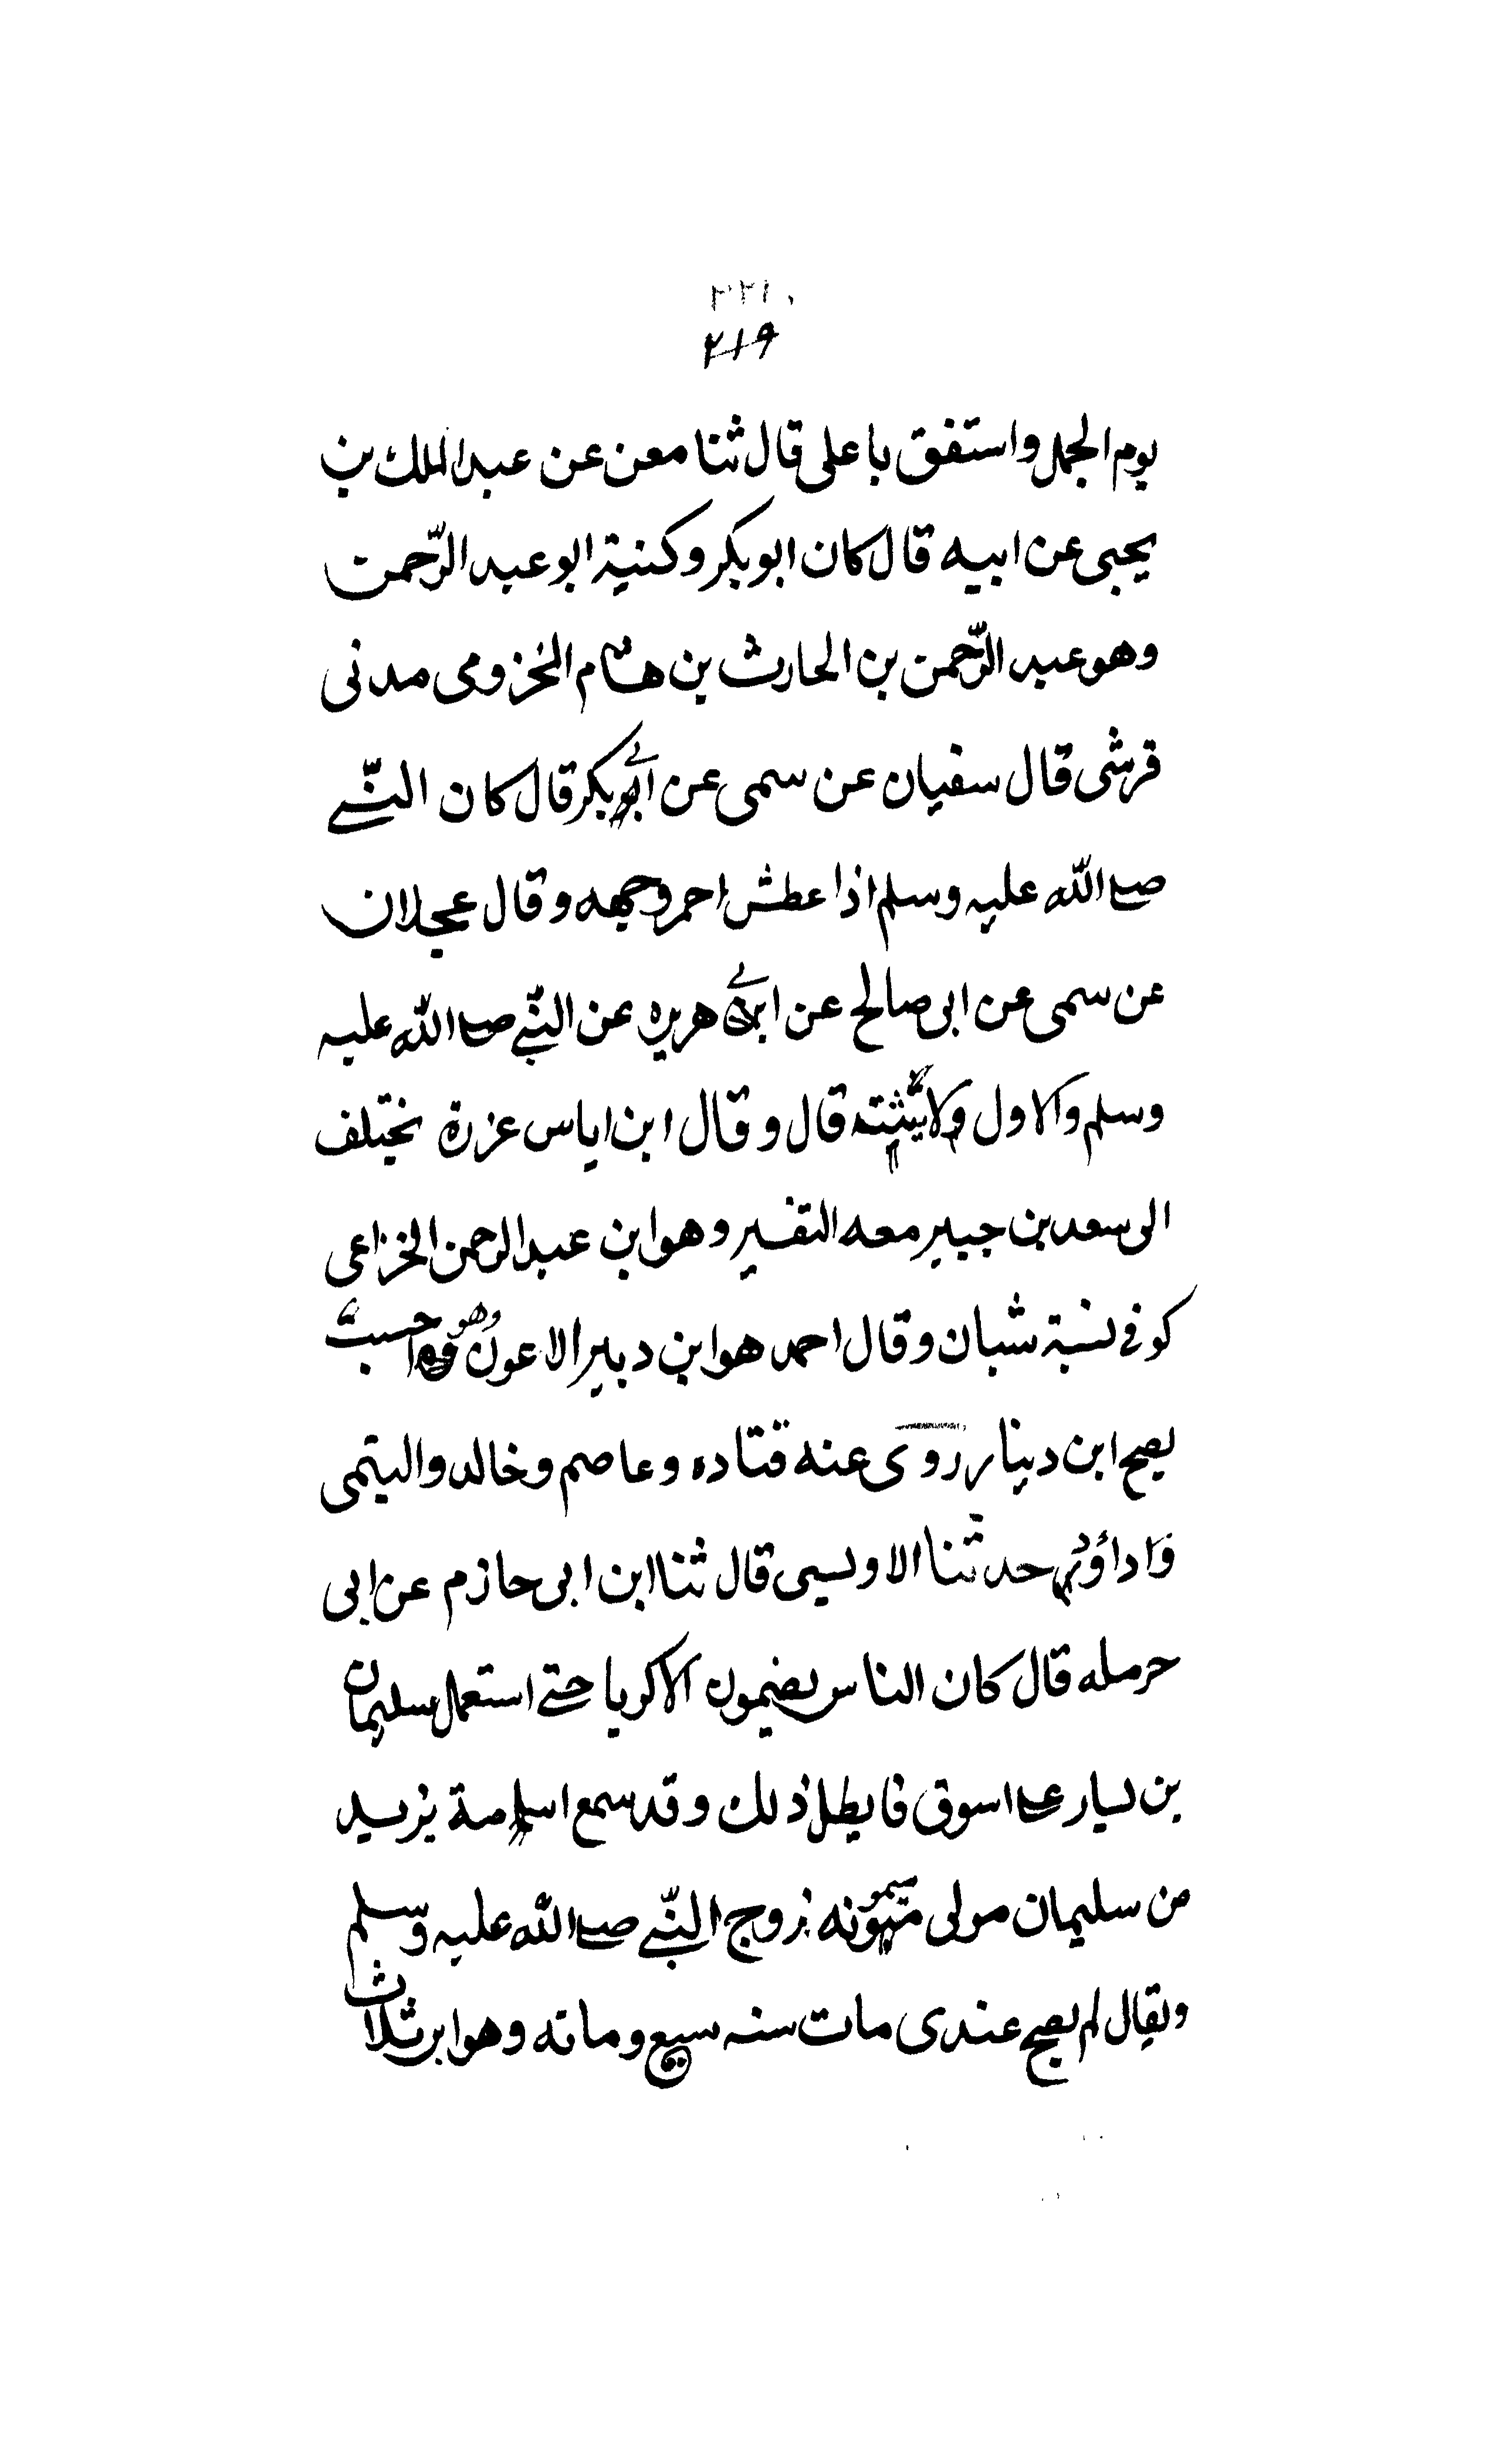 ٢٢١
٢١٩
يوم الجمل واستفق باعلى قال ثنا معن عن عبد الملك بن
يحيى عن ابيه قال كان ابو بكر وكنية ابو عبد الرّحمن
وهو عبد الرّحمن بن الحارث بن هشام المخزومى مدنى
قرشى قال سفيان عن سمى عن ابى بكر قال كان النّبى
صلى الله عليه وسلم اذا عطش احمر وجهه وقال عجلان
عن سمى عن ابى صالح عن ابى هريره عن النّبى صلى الله عليه
وسلم والاول قال وقال ابن اياس عزرة يختلف
الى سعد بن جبير معه التفسير وهو ابن عبد الرحمن الخزاعى
كوفى نسبة شبان وقال احمد هو ابن دبير الاعور وهو احسب
يصح ابن دينار روى عنه قتاده وعاصم وخالد والتيمى
وداؤد حدثنا الاويسى قال ثنا ابن ابى حازم عن ابى
حرمله قال كان الناس يضمون الاكريا حتى استعمل سليمان
بن يسار على اسوق فابطل ذلك وقد سمع اسلمة يزيد
من سليمان مولى ميمونه زوج النّبى صلى الله عليه وسلم
ويقال لم يصح عندى مات سنه سبع ومائه وهو ابن ثلاث